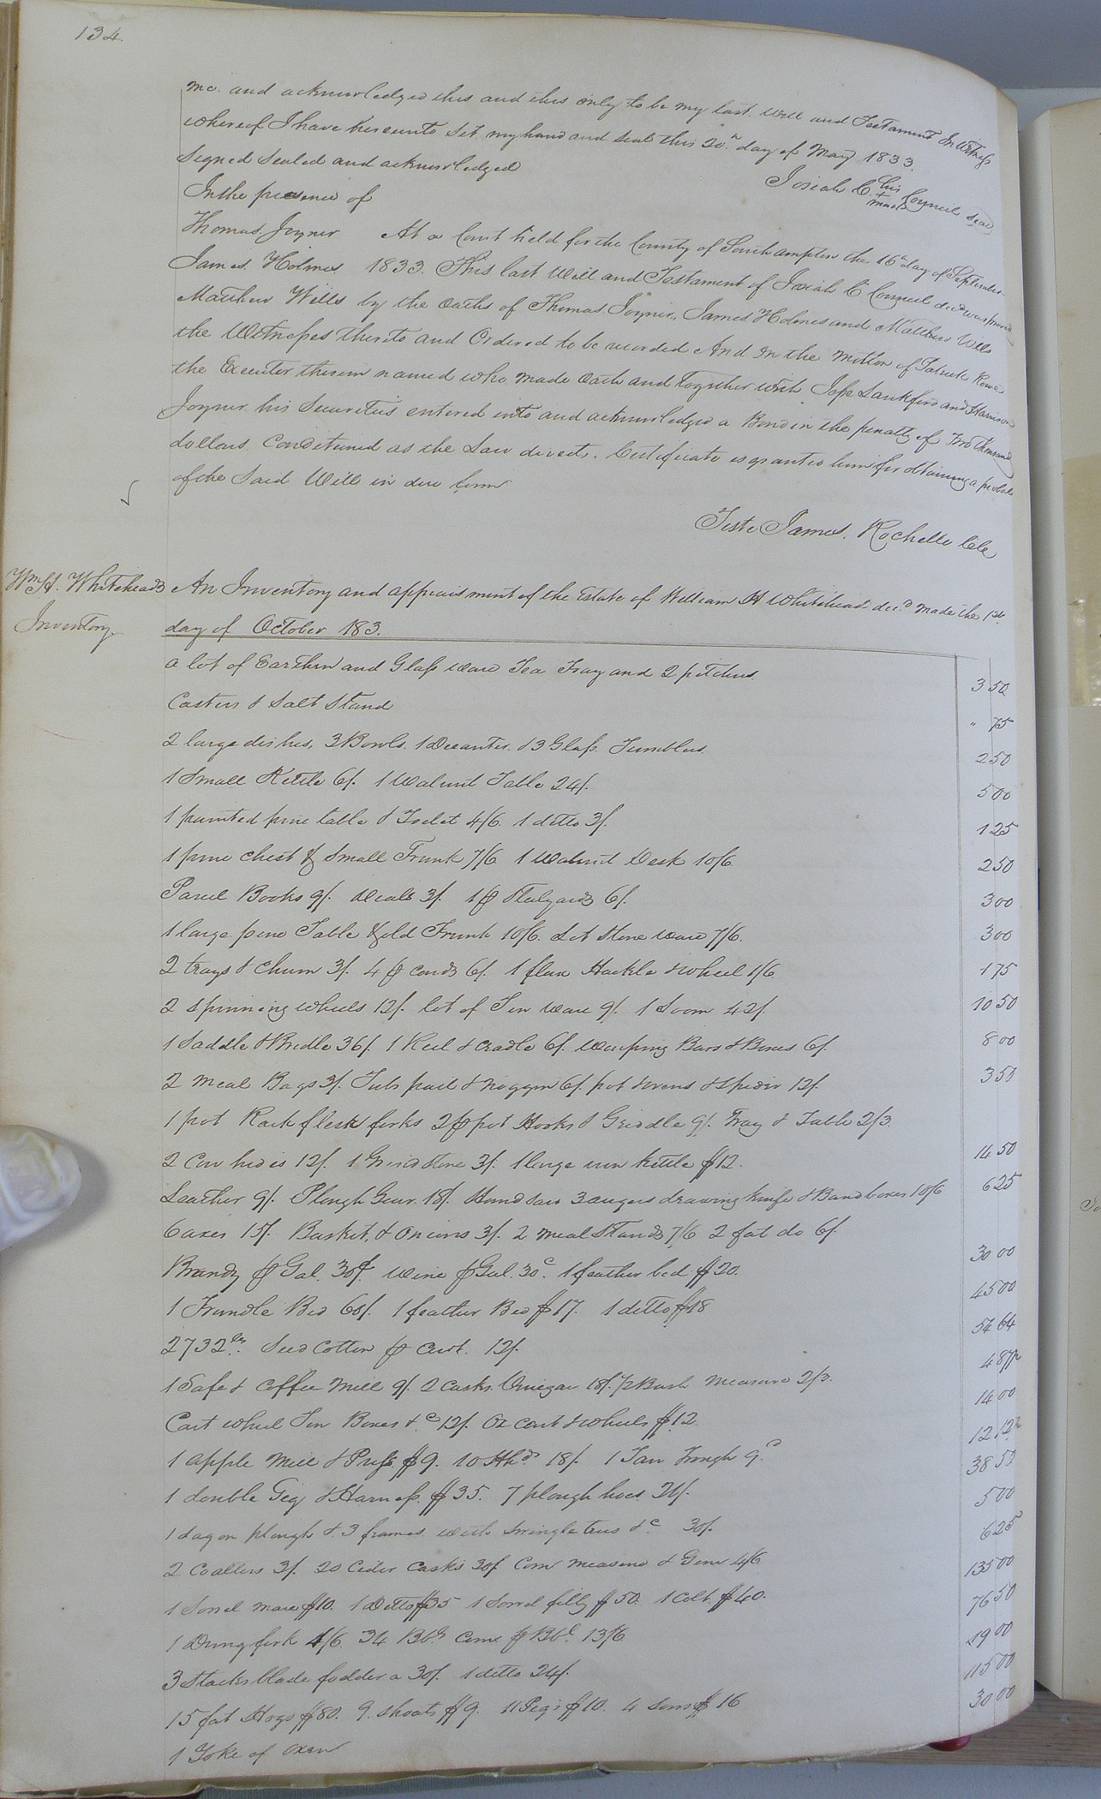 134.
me. and acknowledged this and this only to be my last will and Testament In Witness
whereof I have hereunto set my hand and seal this 20th day of May 1833.
Signed Sealed and acknowledged Josiah C. his + mark Council seal
In the presence of
Thomas Joyner At a Court held for the County of Southampton the 16th day of September
James Holmes 1833. This last Will and Testament of Josiah C Council decd was proved
Matthew Wills by the oaths of Thomas Joyner, James Holmes and Matthew Wills
the Witnesses thereto and Ordered to be recorded And on the motion of Patrick
the Executor therein named who made oath and together with Jesse Lankford and Harrison
Joyner his Securities entered into and acknowledged a Bond in the penalty of Two thousand
dollars Conditioned as the Law directs. Certificate is granted him for obtaining a probate
of the said Will in due form
Teste James. Rochelle Clk
Wm H. Whiteheads Inventory
An Inventory and appraisment of the Estate of William H Whitehead decd made the 1st
day of October 183.
a lot of Earthen and Glass ware Tea Tray and 2 pitchers 3 50
Casters & Salt Stand " 75
2 large dishes, 3 Bowls. 1 Decanter. & 3 Glass Tumblers 2 50
1 Small Kettle 6/. 1 Walnut Table 24/. 5 00
1 painted pine table & Toilet 4/6 1 ditto 3/. 1 25
1 pine chest & small Trunk 7/6 1 Walnut Desk 10/6 2 50
Parcel Books 9/. 3/. 1 p Stilyards 6/. 3 00
1 large pine Table & old Trunk 10/6. Lot Stone ware 7/6. 3 00
2 trays & churn 3/. 4 p cards 6/. 1 flax Hackle & wheel 1/6 1 75
2 spinning wheels 12/. lot of Tin ware 9/. 1 Loom 42/ 10 50
1 Saddle & Bridle 36/. 1 Reel & cradle 6/. Warping Bars & Boxes 6/. 8 00
2 meal Bags 3/. Tubs pail & noggin 6/. pot ovens & spider 12/. 3 50
1 pot Rack flesh forks 2 p pot Hooks & Griddle 9/. Tray & Table 2/3.
2 Cow hides 12/. 1 Grind stone 3/. 1 large iron kettle $12. 14 50
Leather 9/. Plough Gear. 18/. Hand saw 3 augers drawing knife & Band boxes 10/6 6 25
6 axes 15/. Basket, & onions 3/. 2 meal Stands 7/6 2 fat do 6/.
Brandy p Gal. 30¢. Wine p Gal. 30c. 1 feather bed $20. 30 00
1 Trundle Bed 60/. 1 feather Bed $17. 1 ditto $18 45 00
2732 lbs. Seed Cotton p Cwt. 12/. 54 64
1 Safe & Coffee Mill 9/. 2 casks Vinegar 18/. 1/2 Bush measure 2/3. 4 87 1/2
Cart wheel Tin Boxes &c 12/. Ox cart & wheels $12 14 00
1 apple mill & Press $9. 10 Hhds 18/. 1 Tan Trough 9d 12 12 1/2
1 double Gig & Harness. $35. 7 plough hoes 21/. 38 50
1 dagon plough & 3 frames with swingletrees &c 30/. 5 00
2 Coalters 3/. 20 Cider Casks 30/ Corn measure & 4/6 6 25
1 Sorrel mare $10. 1 Ditto $35 1 Sorrel filly $50. 1 Colt $40. 135 00
1 Dung fork 4/6. 34 Bbls Corn p Bbl. 13/6 76 50
3 Stacks blade fodder a 30/. 1 ditto 24/. 19 00
15 fat Hogs $80. 9. shoats $9. 11 Pigs $10. 4 Sows $16 115 00
1 Yoke of oxen 30 00